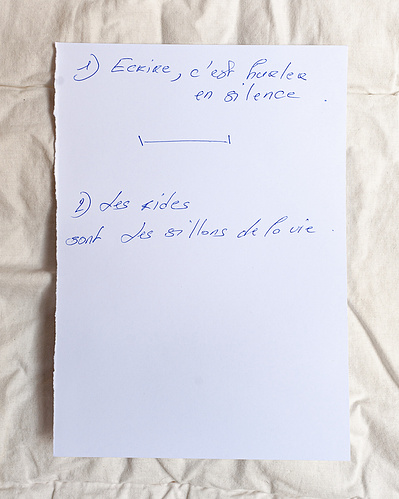 1) Ecrire, c'est hurler
en silence.
2) Les rides
sont des sillons de la vie.